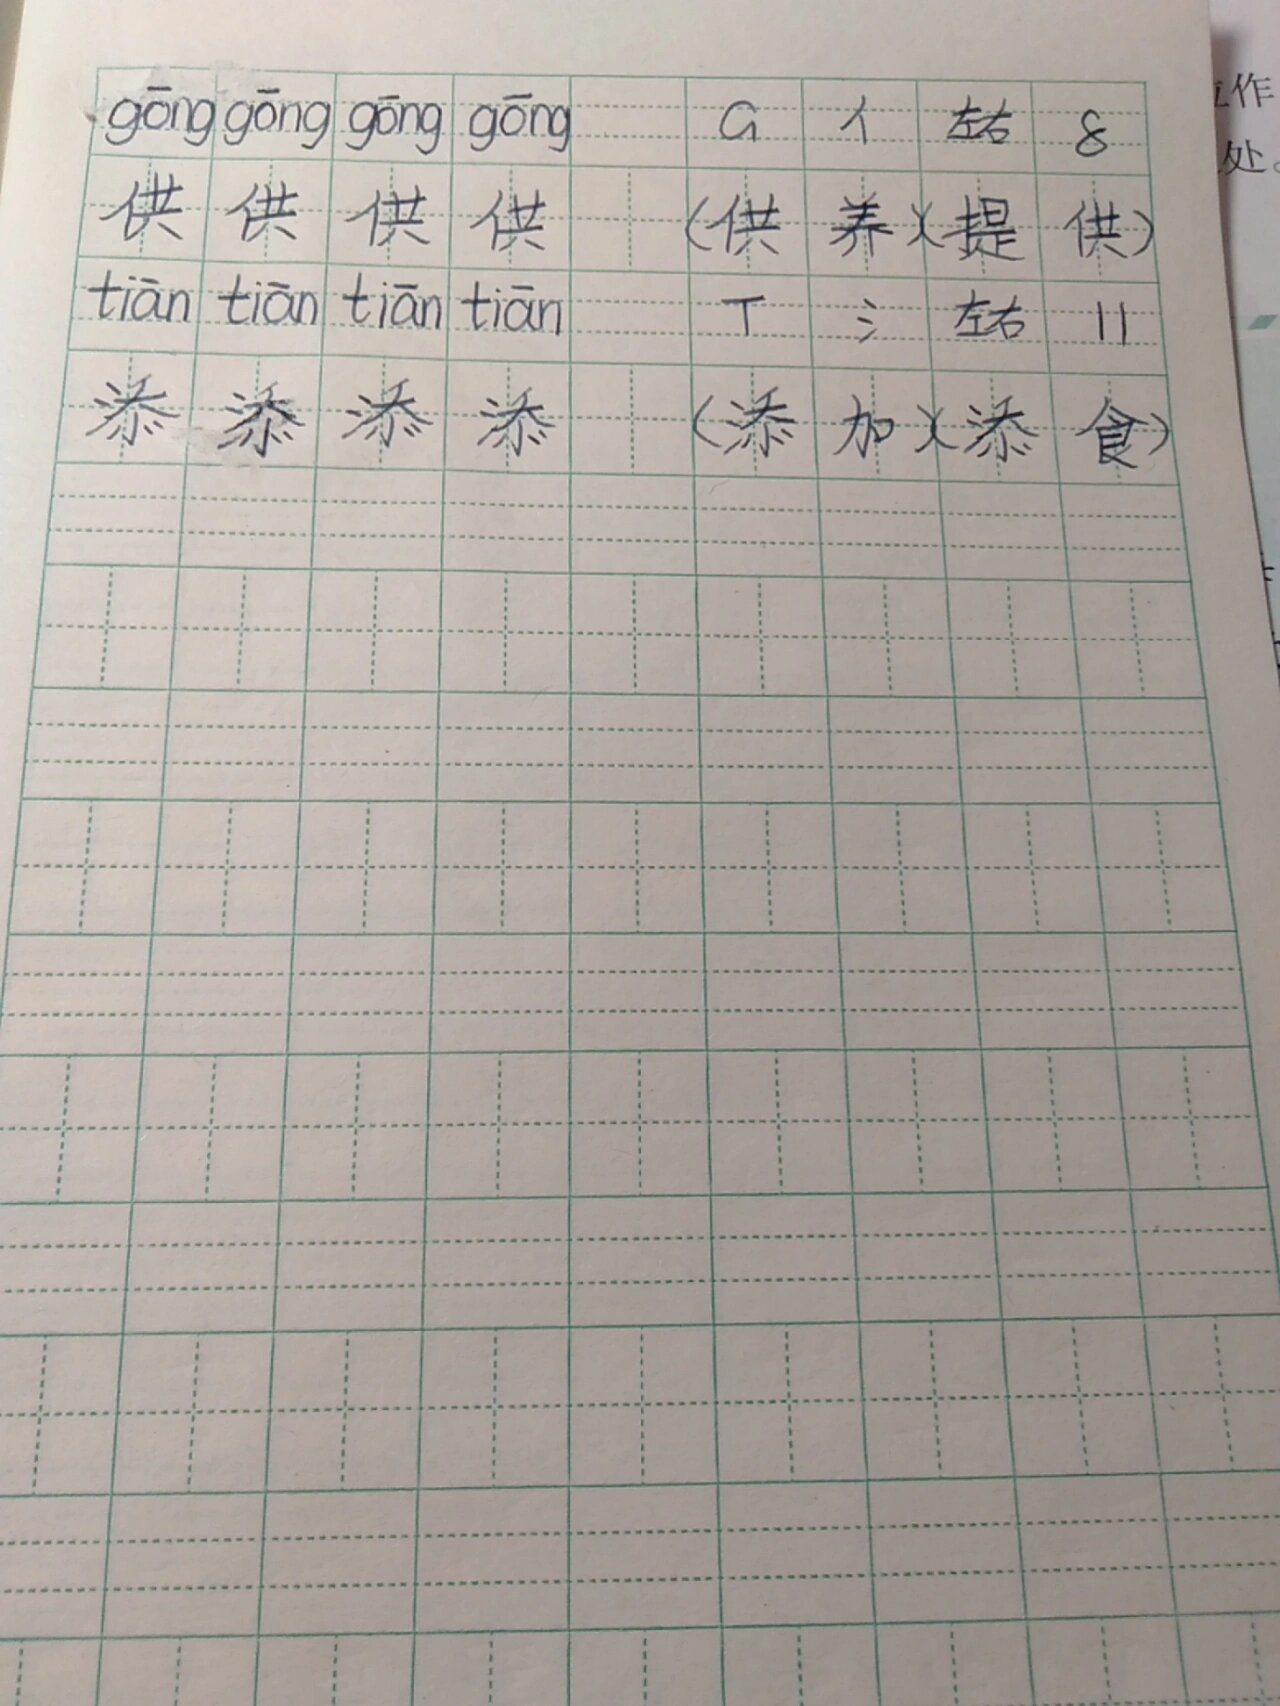 gōng gōng gōng gōng G 亻 左右 8
供 供 供 供 (供养)(提供)
tiān tiān tiān tiān T 氵 左右 11
添 添 添 添 (添加)(添食)
作
处。